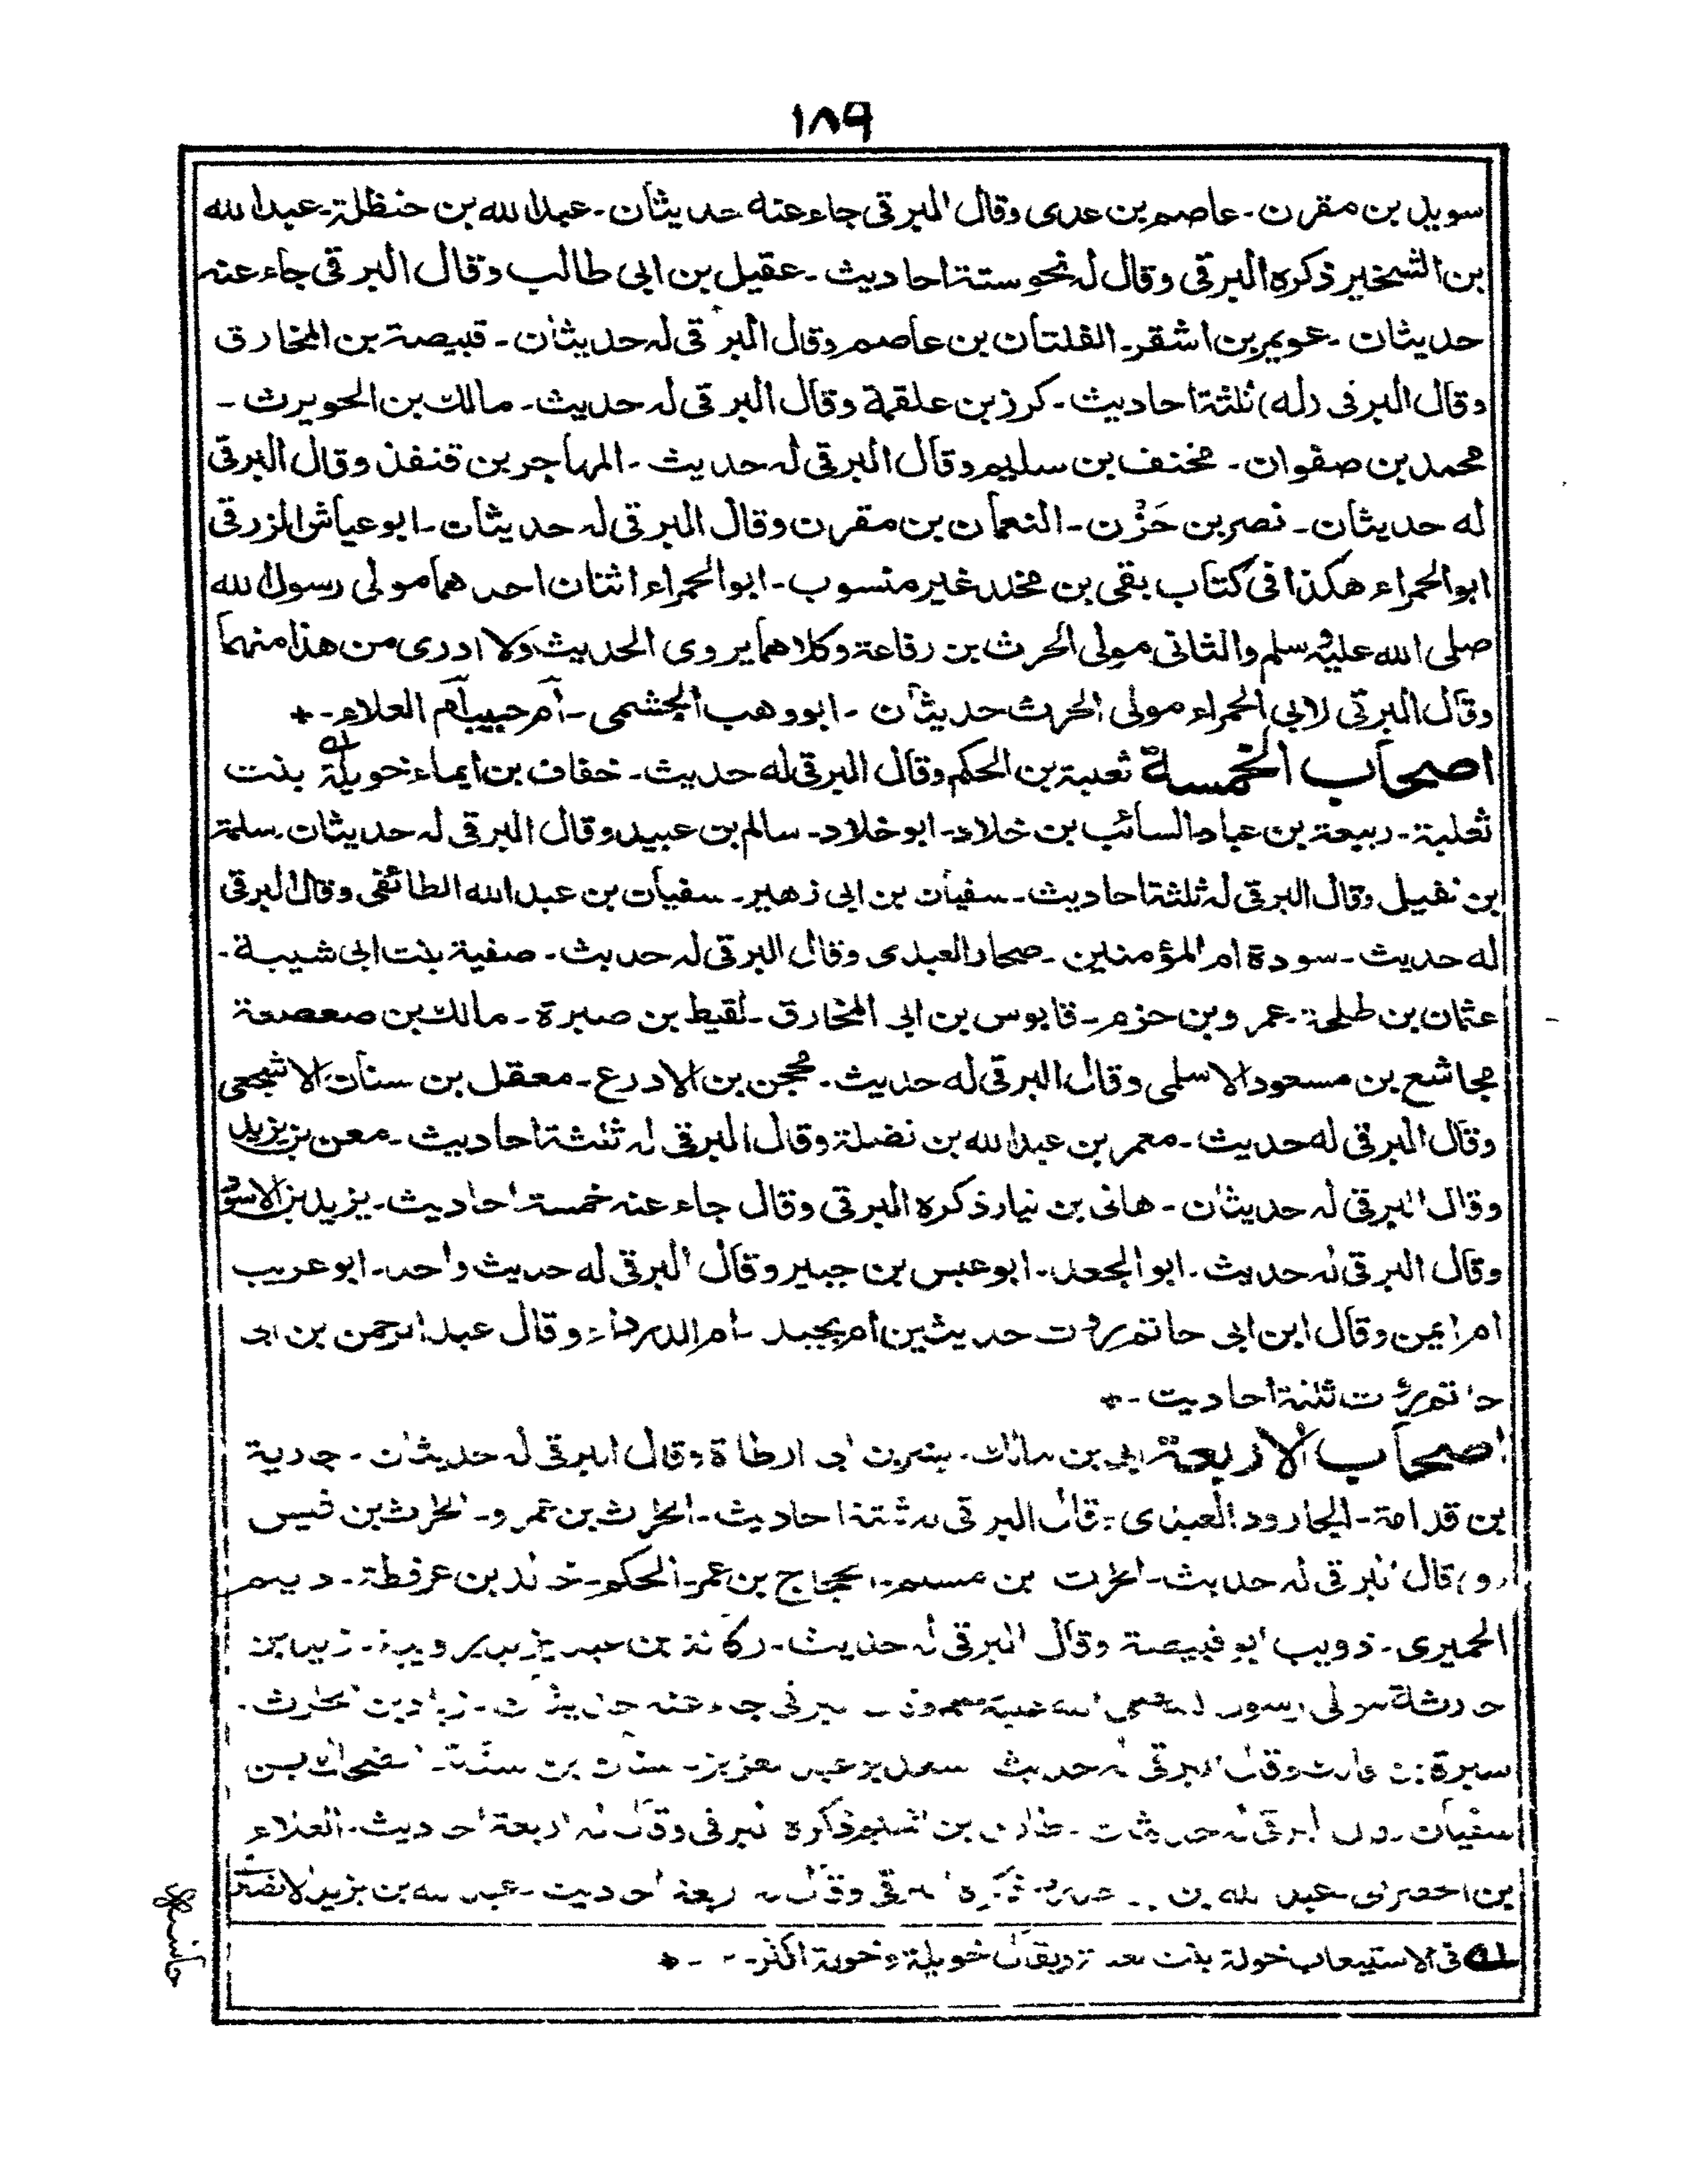 ١٨٩
سويد بن مقرن - عاصم بن عدى وقال البرقى جاء عنه حديثان - عبدالله بن حنظلة - عبدالله
بن الشخير ذكره البرقى وقال له نحو ستة احاديث - عقيل بن ابى طالب وقال البرقى جاء عنه
حديثان - عويمر بن اشقر - الفلتان بن عاصم وقال البرقى له حديثان - قبيصة بن المخارق
وقال البرقى (له) ثلثة احاديث - كرز بن علقمة وقال البرقى له حديث - مالك بن الحويرث -
محمد بن صفوان - مخنف بن سليم وقال البرقى له حديث - المهاجر بن قنفذ وقال البرقى
له حديثان - نصر بن حَزْن - النعمان بن مقرن وقال البرقى له حديثان - ابو عياش الزرقى
ابو الحمراء هكذا فى كتاب بقى بن مخلد غير منسوب - ابو الحمراء اثنان احدهما مولى رسول الله
صلى الله عليه وسلم والثانى مولى الحرث بن رفاعة وكلاهما يروى الحديث ولا ادرى من هذا منهما
وقال البرقى لابى الحمراء مولى الحرث حديثان - ابو وهب الجشمى - أم حبيب أم العلاء - *
اصحاب الخمسة ثعبة بن الحكم وقال البرقى له حديث - خفاف بن ايماء خويلة له بنت
ثعلبة - ربيعة بن عباد السائب بن خلاد - ابو خلاد - سالم بن عبيد وقال البرقى له حديثان - سلمة
بن نفيل وقال البرقى له ثلثة احاديث - سفيان بن ابى زهير - سفيان بن عبدالله الطائفى وقال البرقى
له حديث - سودة ام المؤمنين - صحار العبدى وقال البرقى له حديث - صفية بنت ابى شيبة -
عثمان بن طلحة - عمرو بن حزم - قابوس بن ابى المخارق - لقيط بن صبرة - مالك بن صعصعة
مجاشع بن مسعود الاسلمى وقال البرقى له حديث - محجن بن الادرع - معقل بن سنان الاشجعى
وقال البرقى له حديث - معمر بن عبدالله بن نضلة وقال البرقى له ثلثة احاديث - معن بن يزيد
وقال البرقى له حديثان - هانى بن نيار ذكره البرقى وقال جاء عنه خمسة احاديث - يزيد بن الاسود
وقال البرقى له حديث - ابو الجعد - ابو عبس بن جبير وقال البرقى له حديث واحد - ابو عريب
ام ايمن وقال ابن ابى حاتم روت حديثين أم بجيد - ام الدرداء وقال عبد الرحمن بن ابى
حاتم روت ثلثة احاديث - *
اصحاب الاربعة ابى بن مالك - بسر بن ابى ارطاة وقال البرقى له حديثان - جارية
بن قدامة - الجارود العبدى وقال البرقى له ثلثة احاديث - الحرث بن عمرو - الحرث بن قيس
(و) قال البرقى له حديث - الحرث بن مسلم - الحجاج بن عمر - الحكم - خالد بن عرفطة - ديلم
الحميرى - ذويب ابو قبيصة وقال البرقى له حديث - ركانة بن عبد يزيد - زيد بن
حارثة مولى رسول الله صلى الله عليه وسلم وقال البرقى جاء عنه حديثان - زياد بن الحارث -
سبرة بن وقال البرقى له حديث سعد بن سنان بن سنة - الضحاك بن
سفيان وقال البرقى له حديثان - بن ذكره البرقى وقال له اربعة احاديث - العلاء
بن الحضرمى - عبد الله بن ذكره البرقى وقال له اربعة احاديث - عبد الله بن يزيد الانصارى
له فى الاستيعاب خولة بنت ثعلبة ويقال خويلة وخولة اكثر - *
حاشيه